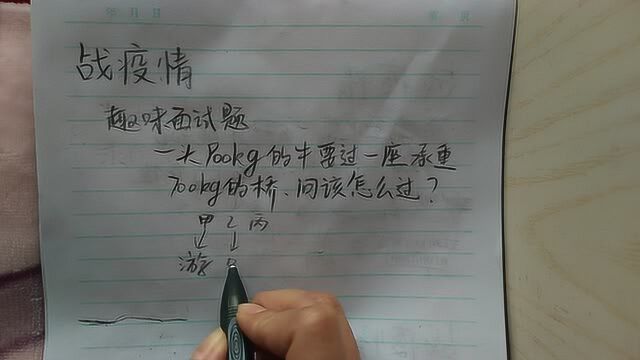 年 月 日
战疫情
趣味面试题
一头800kg的牛要过一座承重
700kg的桥、问该怎么过？
甲 乙 丙
游